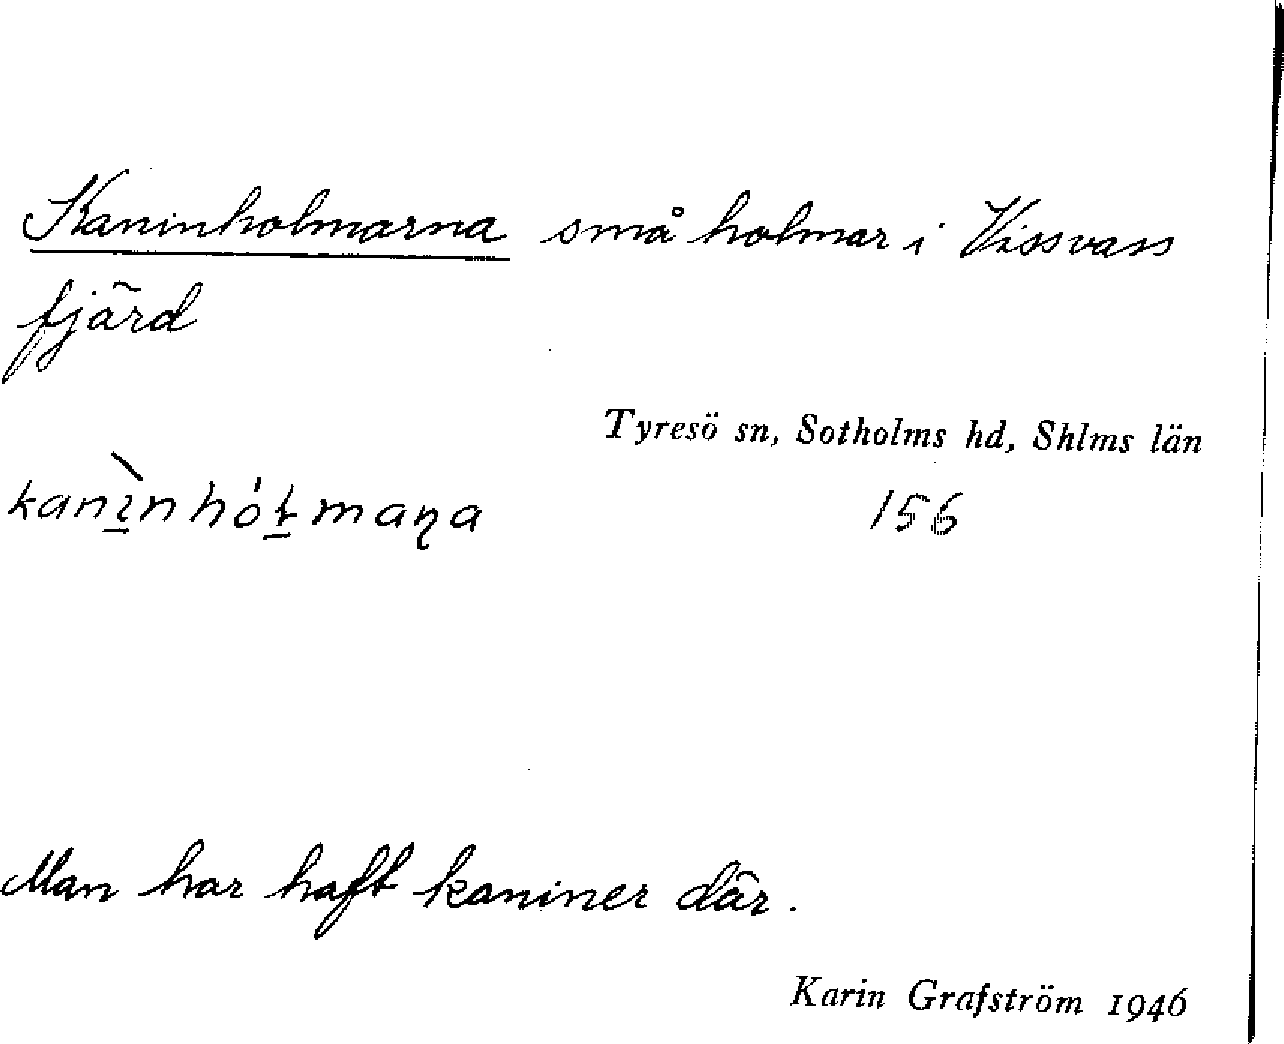 Kaninholmarna små holmar i Vissvass
fjärd
Tyresö sn, Sotholms hd, Shlms län
156
Man har haft kaniner där.
Karin Grafström 1946